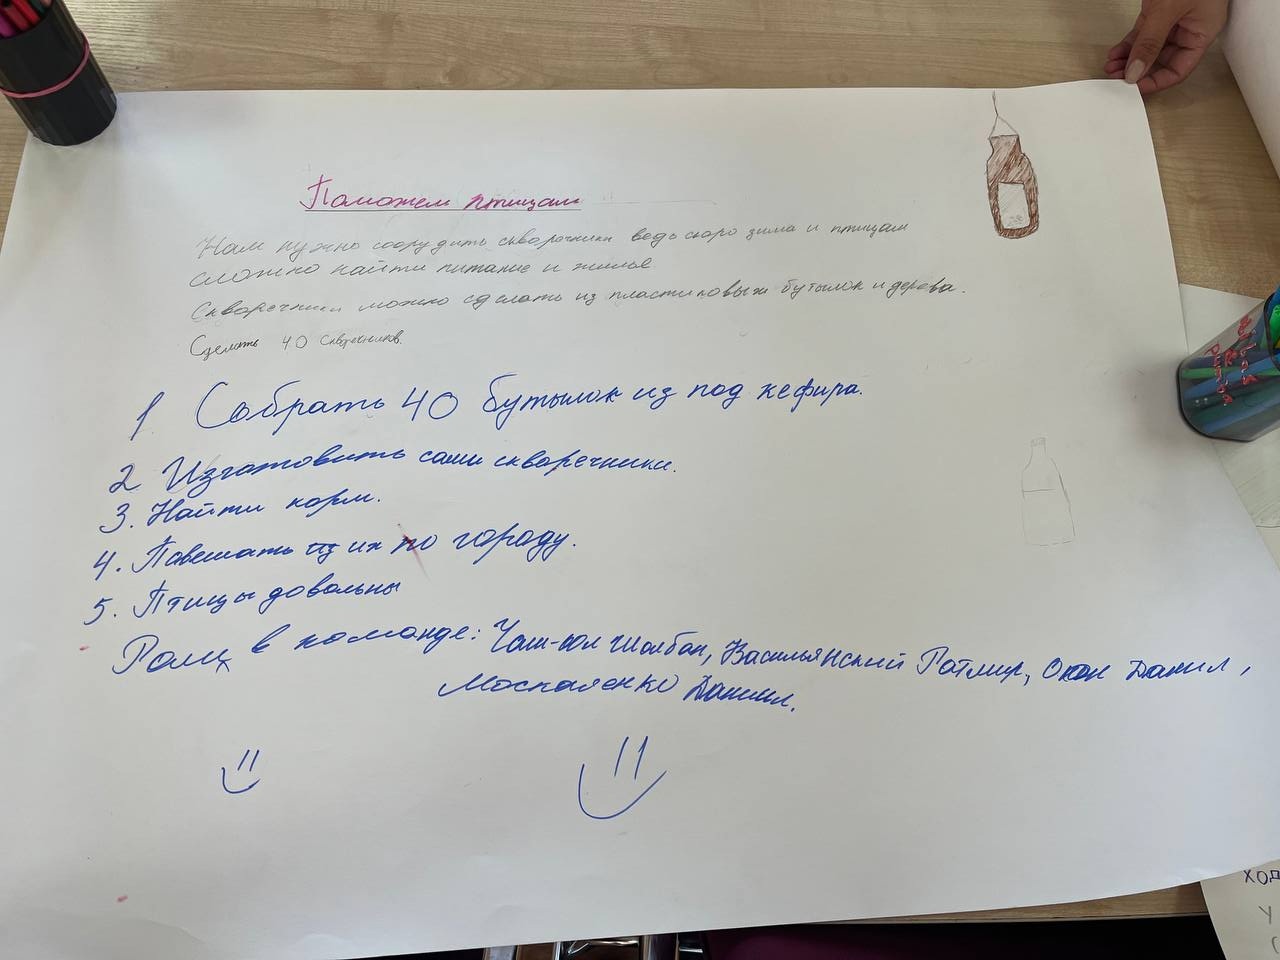 Поможем птицам
Нам нужно соорудить скворечники ведь скоро зима и птицам
сложно найти питание и жильё.
Скваречники можно сделать из пластиковых бутылок и дерева.
Сделать 40 скворечников.
1 Собрать 40 бутылок из под кефира.
2 Изготовить сами скворечники.
3. Найти корм.
4. Повешать их по городу.
5. Птицы довольны
Роли в команде: Чаш-оол Чолбан, Васильянский Ратмир, Данил,
Москаленко Даниил.
ХОД
У